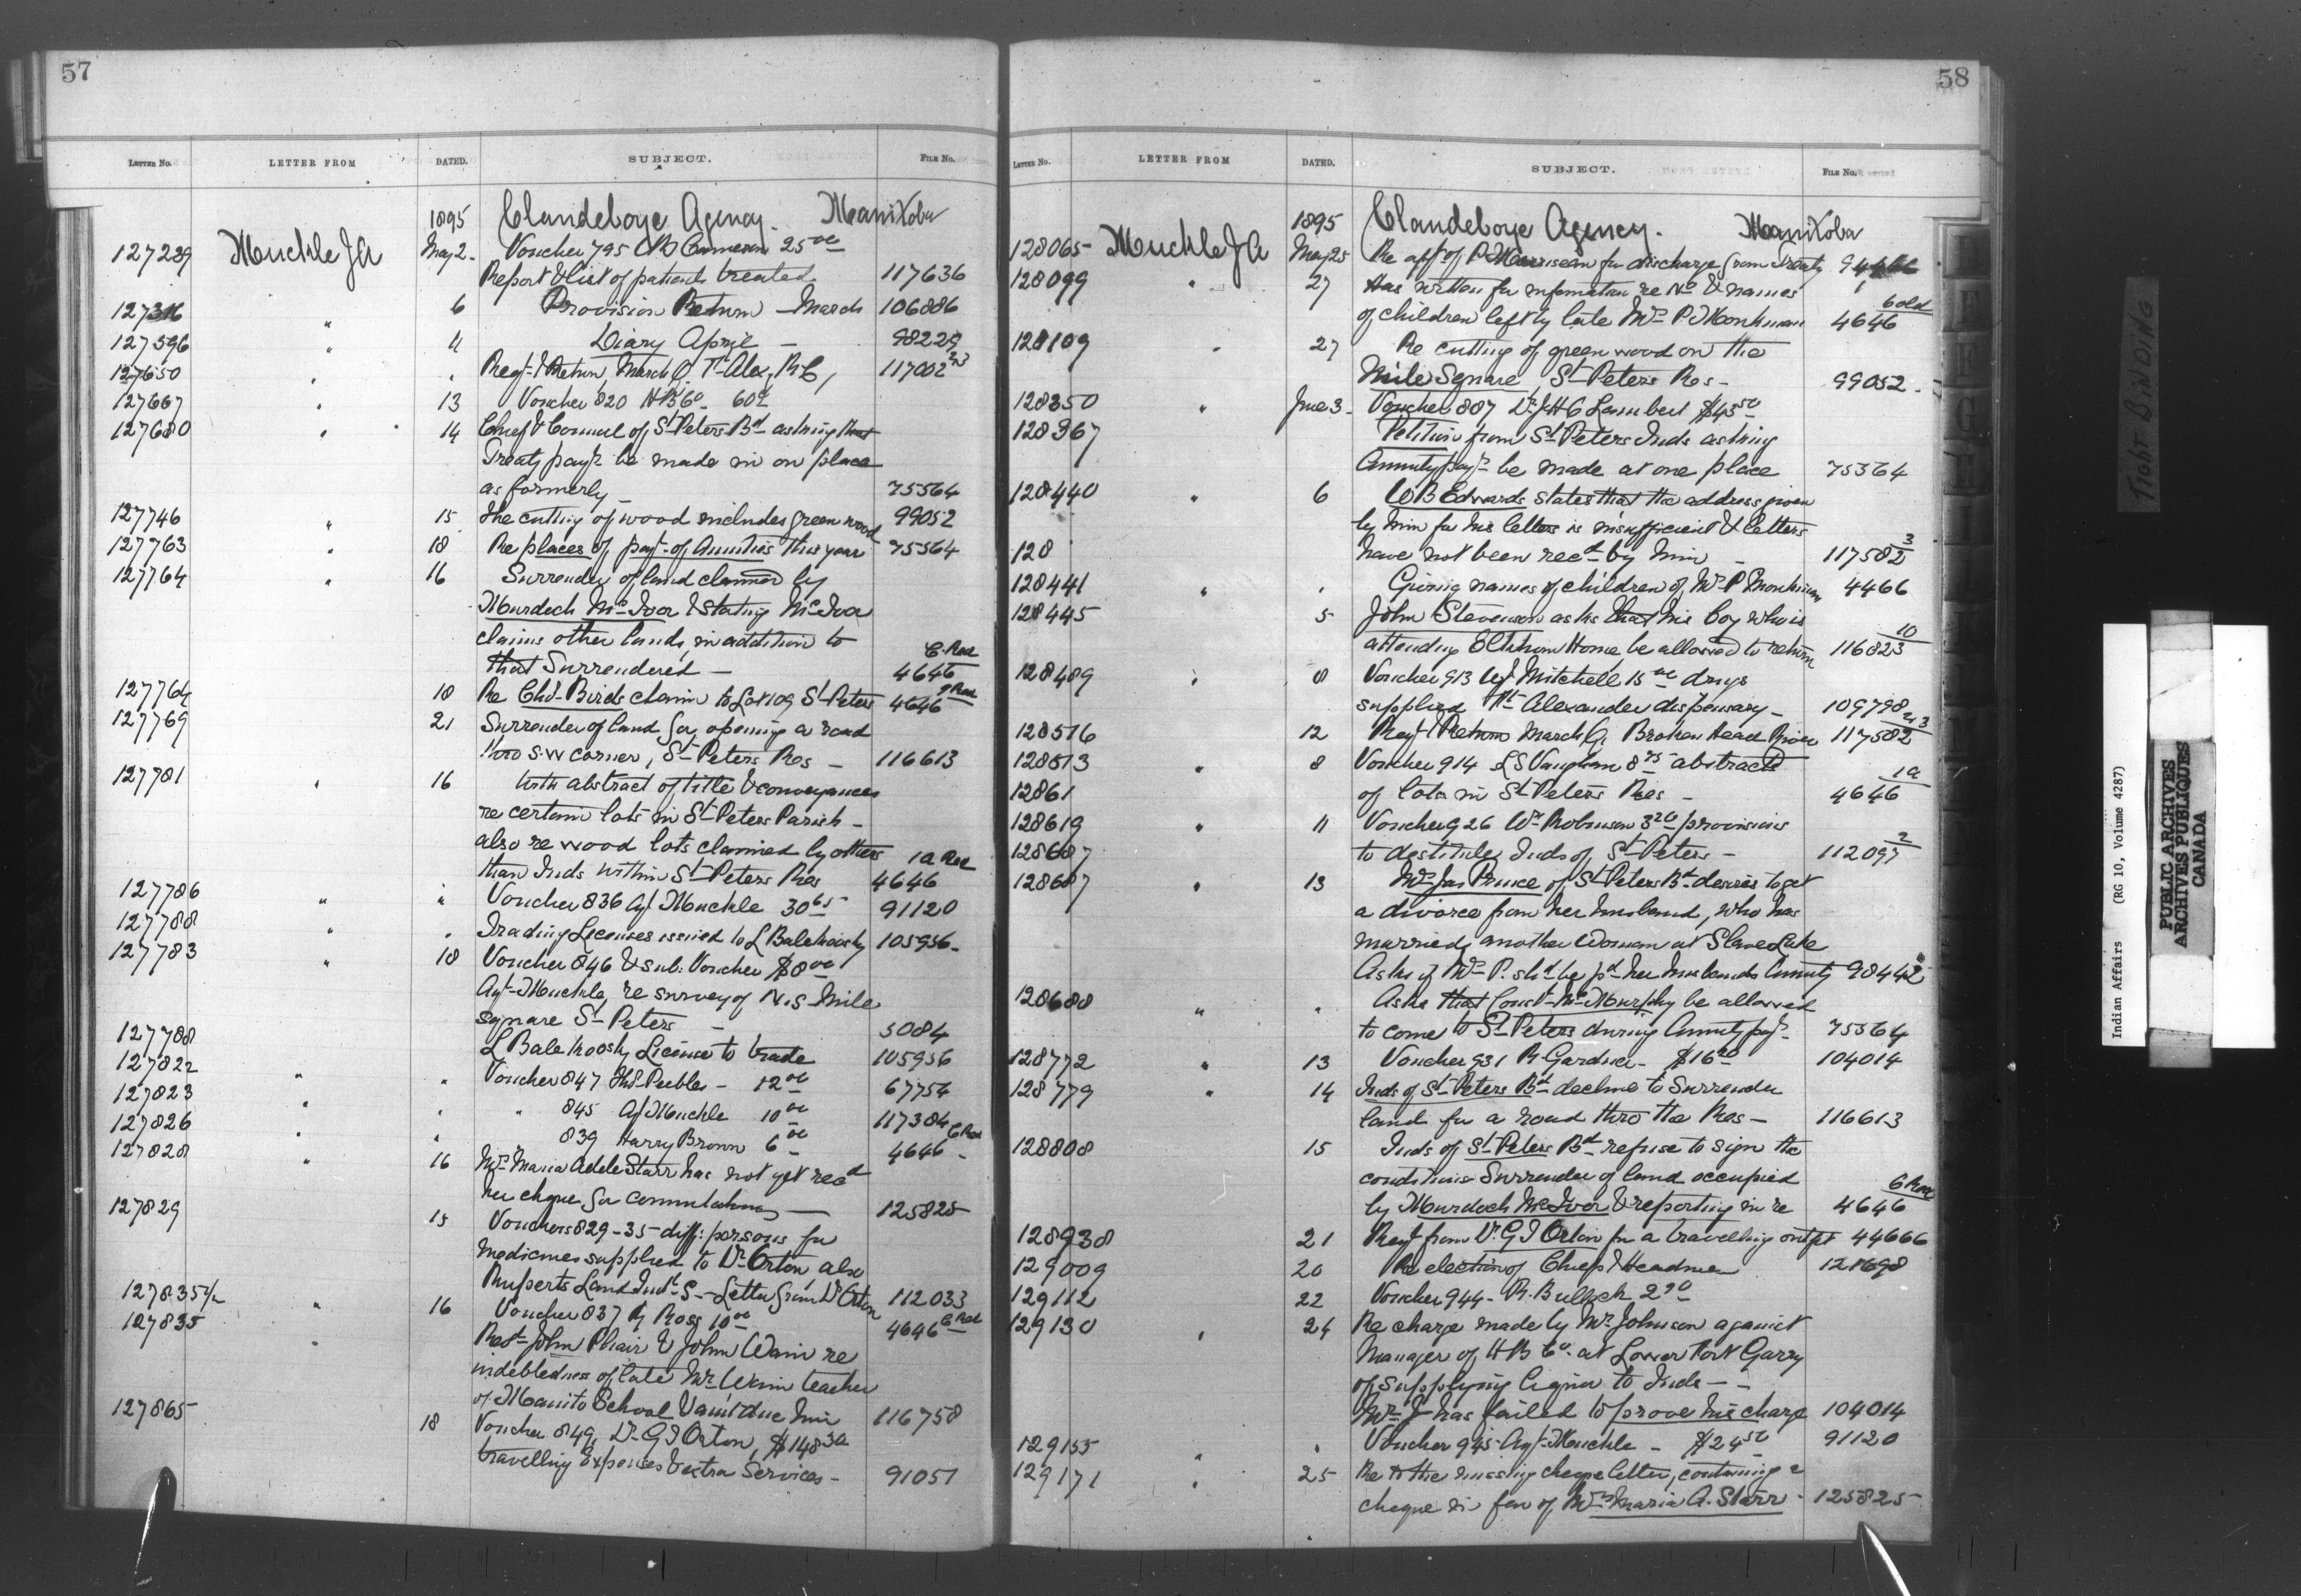 57
LETTER No. LETTER FROM DATED. SUBJECT. FILE No.
1895 Clandeboye Agency. Manitoba
127239 Muckle JA May 2. Voucher 795 Cameron 25 00
Report & list of patients treated 117636
127316 " 6 Provision Return - March 106886
127596 " 11 Diary April - 98229
127650 " " Reqt. & Return March Q. Ft Alex, RC, 117002
127667 " 13 Voucher 820 HB Co
127680 " 14 Chief & Council of St Peters Bd asking that
Treaty payt. be made in on place
as formerly - 75564
127746 " 15 The cutting of wood includes green wood 99052
127763 " 18 Re places of payt. of Annuities this year 75564
127764 " 16 Surrender of land claimed by
Murdoch McIvor & stating McIvor
claims other lands, in addition to
that Surrendered - 4646
127764 18 Re Chs. Birds claim to Lot 109 St Peters 4646
127769 21 Surrender of land for opening a road
thro S.W corner, St Peters Res - 116613
127781 " 16 With abstract of title & conveyances
re certain lots in St Peters Parish -
also re wood lots claimed by others 1a Red
than Inds within St Peters Res 4646
127786 " " Voucher 836 Agt Muckle 30 65 91120
127788 " " Trading Licenses issued to L Balekoosky 105956-
127783 " 18 Voucher 846 & sub: Voucher $8 00
Agt-Muckle, re survey of N.S Mile
square St Peters - 5084
127788 L Balekoosky License to trade 105956
127822 " " Voucher 847 Thos Peebles - 12 00 67754
127823 " " " 845 Agt Muckle 10 00 117384
127826 " " 839 Harry Brown 6 00 4646
127828 " 16 Mrs Maria Adele Starr has not yet recd
her cheque for commutation - 125825
127829 15 Vouchers 829-35- diff: persons for
Medicines supplied to Dr Orton also
Ruperts Land Indl. S - Letter from Dr Orton 112033
127835 1/2 " 16 Voucher 837 Ross 10 00 4646
127835 " Rest. John Phair & John Wain re
indebtedness of late Mr Wain teacher
of Manito School & amt due him 116758
127865 18 Voucher 849, Dr G J Orton, $148 30
travelling Expenses & extra Services - 91051
58
LETTER No. LETTER FROM DATED. SUBJECT. FILE No.
1895 Clandeboye Agency. Manitoba
128065 Muckle JA May 25 Re appn. of P Morriseau for discharge from Treaty
128099 " 27 Has written for information re No & names
of children left by late Mrs P. Monkman 4646
128109 " 27 Re cutting of green wood on the
Mile Square, St Peters Res - 99052.
128350 " June 3 - Voucher 887 Dr J H C Lambert $43 50
128367 Petition from St Peters Inds asking
Annuity payt. be made at one place 75564
128440 " 6 W B Edwards states that the address given
by him for his letters is insufficient & letters
128 have not been recd by him - 117582 3
128441 " " Giving names of children of Mrs P Monkman 4466
128445 5 John Stevenson asks that his boy who is
attending Elkhorn Home, be allowed to return 116823 10
128489 " 8 Voucher 913 Mitchell 15 00 drugs
supplied Ft Alexander dispensary - 109798
128516 12 Reqt. & Return March Q. Broken Head River 117582
128513 " 8 Voucher 914 L S Vaughan 8 75 abstracts
12861 of lots in St Peters Res - 4646 1a
128619 " 11 Voucher 926 Wm Robinson 3 20 provisions
128687 to destitute Inds of St Peters - 112097 2
128687 " 13 Mrs Jas Prince of St Peters Bd. desires to get
a divorce from her husband, who has
married another Woman at Slave Lake
Asks if Mrs P. shd be pd her husbands Annuity 98442
128688 " " Asks that Const- McMurphy be allowed
to come to St Peters during Annuity payt. 75564
128772 " 13 Voucher 931 R Gardner - 104014
128779 " 14 Inds of St Peters Bd decline to Surrender
land for a road thro the Res - 116613
128808 15 Inds of St Peters Bd refuse to sign the
conditions Surrender of land occupied
by Murdoch McIvor & reporting in re 4646
128938 21 Reqt from Dr G J Orton for a travelling outfit 44666
129009 20 Re election of Chief & Headmen 121698
129112 22 Voucher 944 - R. Bullock 2 90
129130 " 24 Re charge made by Mr Johnson against
Manager of H B Co. at Lower Fort Garry
of supplying liquor to Inds - -
Mr J- has failed to prove his charge 104014
129155 " " Voucher 945 Agt-Muckle - $24 50 91120
129171 " 25 Re to the missing cheque letter, containing a
cheque in fav of Mrs Maria A. Starr - 125825
TIGHT BINDING
Indian Affairs (RG 10, Volume 4287)
PUBLIC ARCHIVES
ARCHIVES PUBLIQUES
CANADA